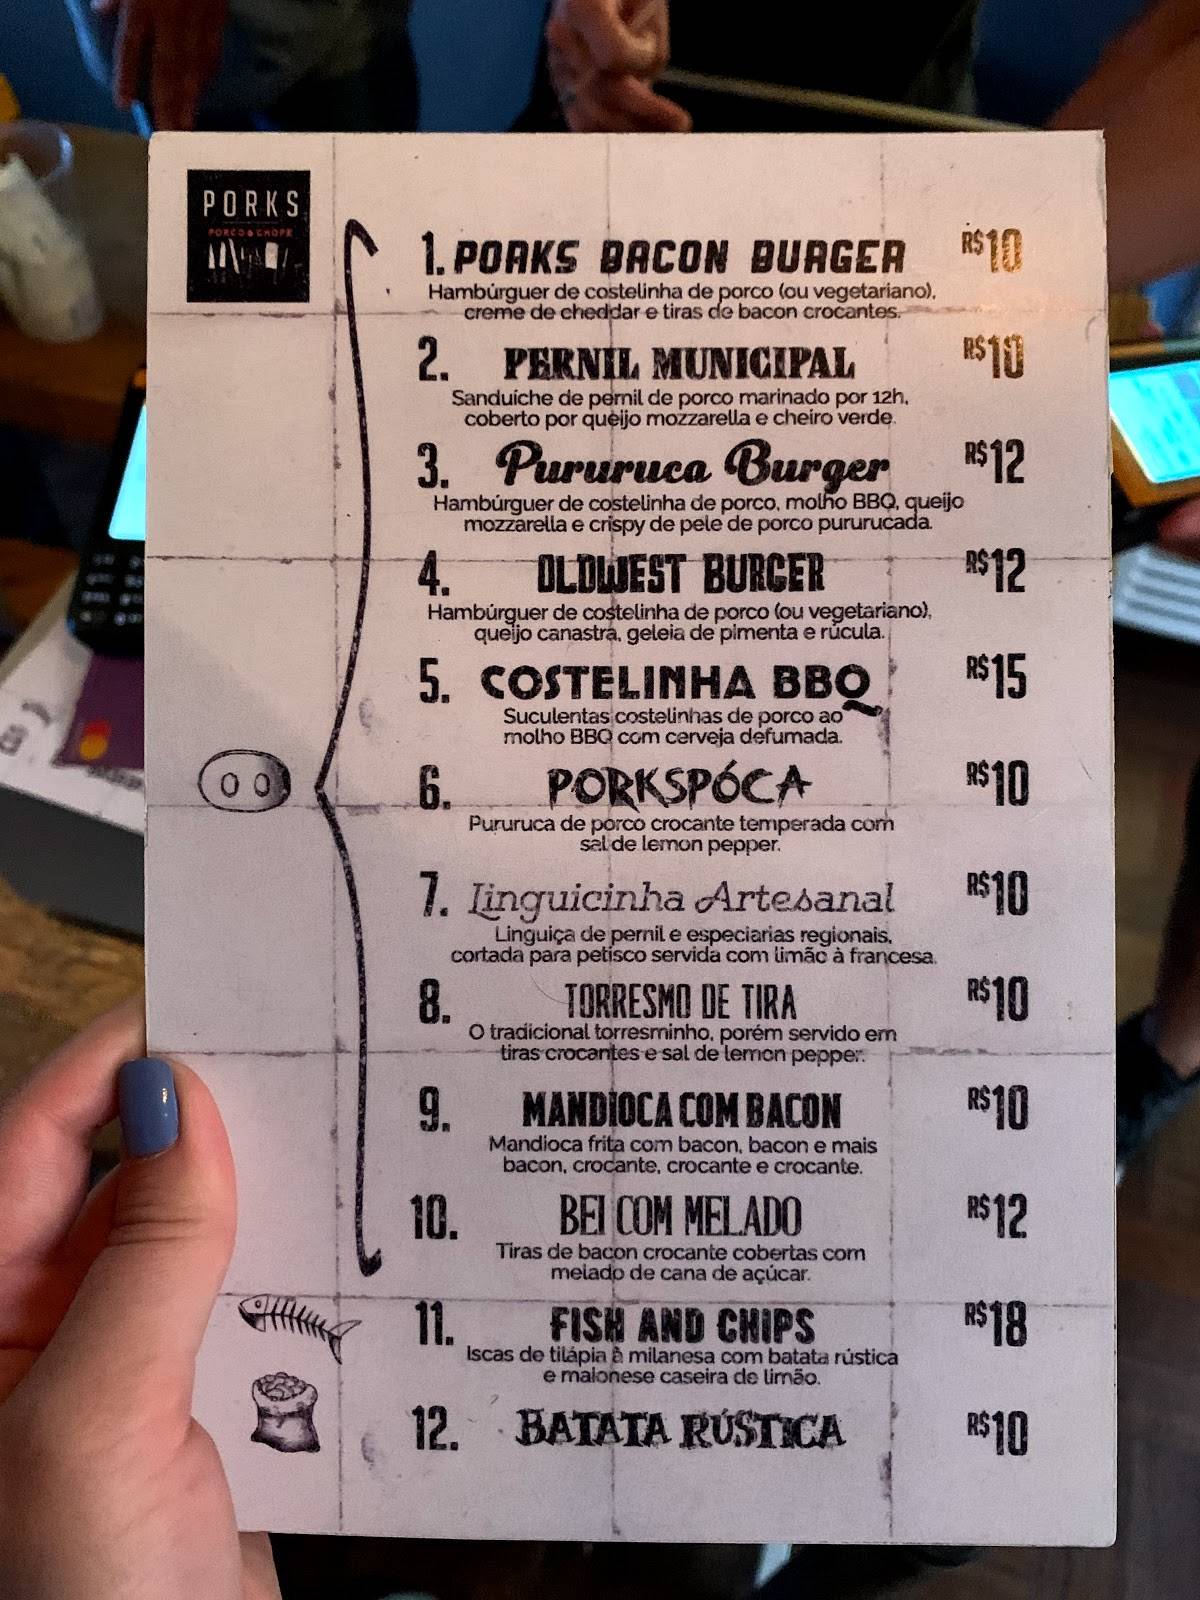 PORKS
PORCO & CHOPE
1. PORKS BACON BURGER R$10
Hambúrguer de costelinha de porco (ou vegetariano),
creme de cheddar e tiras de bacon crocantes.
2. PERNIL MUNICIPAL R$10
Sanduíche de pernil de porco marinado por 12h,
coberto por queijo mozzarella e cheiro verde.
3. Pururuca Burger R$12
Hambúrguer de costelinha de porco, molho BBQ, queijo
mozzarella e crispy de pele de porco pururucada.
4. OLDWEST BURGER R$12
Hambúrguer de costelinha de porco (ou vegetariano),
queijo canastra, geleia de pimenta e rúcula.
5. COSTELINHA BBQ R$15
Suculentas costelinhas de porco ao
molho BBQ com cerveja defumada.
6. PORKSPÓCA R$10
Pururuca de porco crocante temperada com
sal de lemon pepper.
7. Linguicinha Artesanal R$10
Linguiça de pernil e especiarias regionais,
cortada para petisco servida com limão à francesa.
8. TORRESMO DE TIRA R$10
O tradicional torresminho, porém servido em
tiras crocantes e sal de lemon pepper.
9. MANDIOCA COM BACON R$10
Mandioca frita com bacon, bacon e mais
bacon, crocante, crocante e crocante.
10. BEI COM MELADO R$12
Tiras de bacon crocante cobertas com
melado de cana de açúcar.
11. FISH AND CHIPS R$18
Iscas de tilápia à milanesa com batata rústica
e maionese caseira de limão.
12. BATATA RÚSTICA R$10